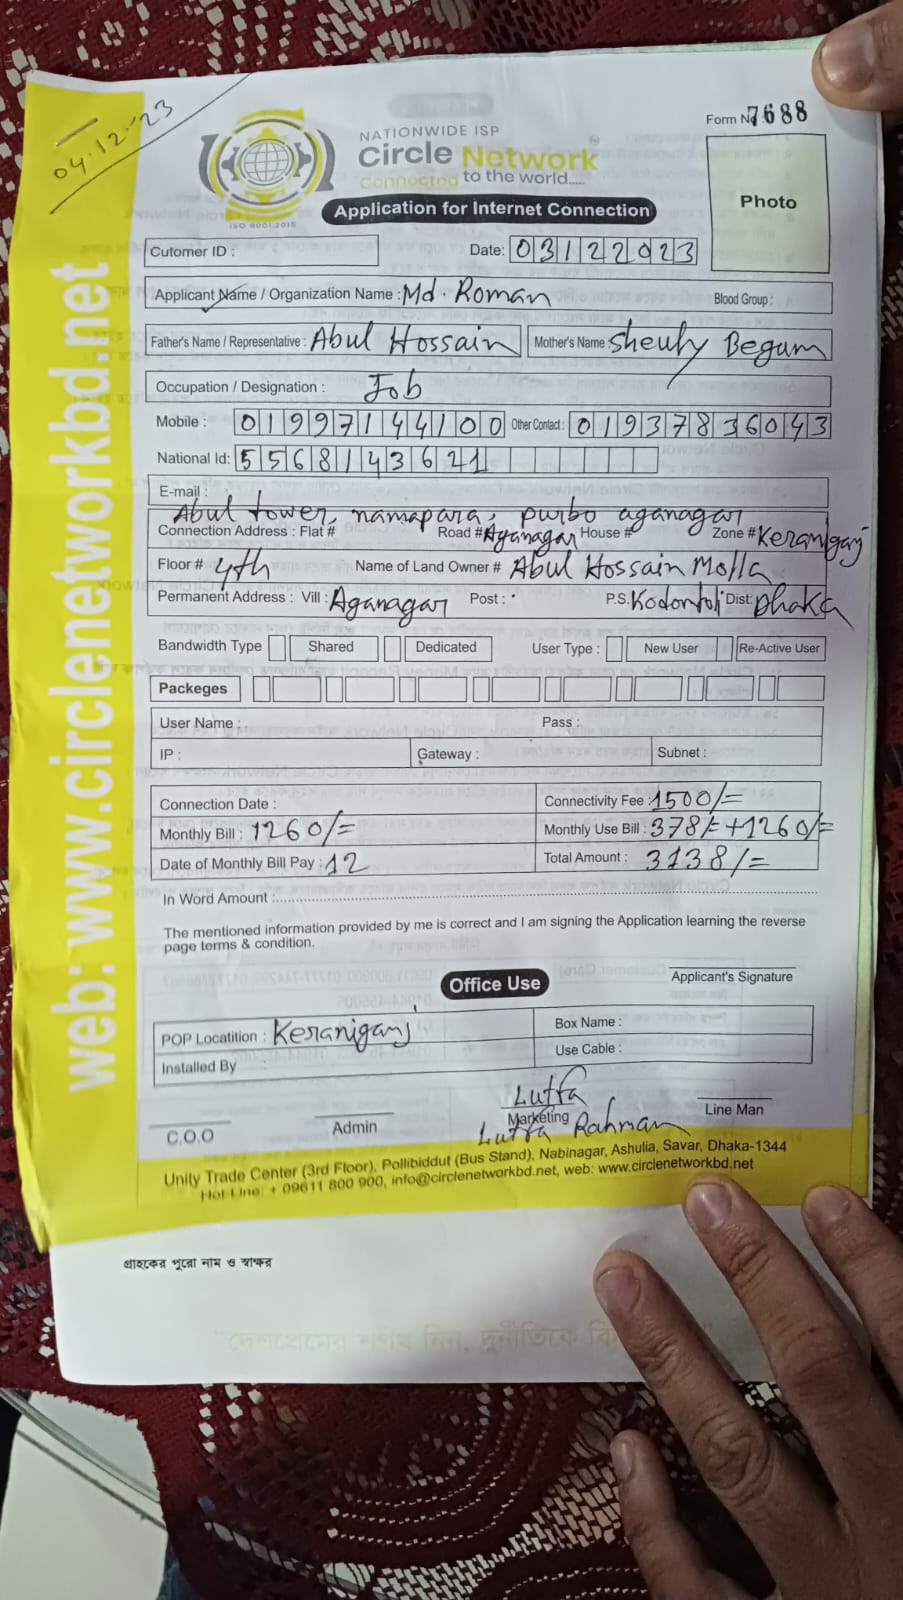 04.12.23
Form No 7688
NATIONWIDE ISP
Circle Network
Connected to the world.....
ISO 9001:2015
Application for Internet Connection
Photo
Cutomer ID :
Date: 03122023
Applicant Name / Organization Name : Md. Roman Blood Group :
Father's Name / Representative : Abul Hossain Mother's Name Sheuly Begum
Occupation / Designation : Job
Mobile : 01997144100 Other Contact : 01937836043
National Id: 5568143621
E-mail :
Abul tower, namapara, purbo aganagar
Connection Address : Flat # Road # Aganagar House # Zone # Keraniganj
Floor # 4th Name of Land Owner # Abul Hossain Molla
Permanent Address : Vill : Aganagar Post : P.S. Kodomtoli Dist: Dhaka
Bandwidth Type Shared Dedicated User Type : New User Re-Active User
Packeges
User Name : Pass :
IP : Gateway : Subnet :
Connection Date : Connectivity Fee : 1500/=
Monthly Bill : 1260/= Monthly Use Bill : 378/= +1260/=
Date of Monthly Bill Pay : 12 Total Amount : 3138/=
In Word Amount :
The mentioned information provided by me is correct and I am signing the Application learning the reverse
page terms & condition.
Applicant's Signature
Office Use
POP Locatition : Keraniganj Box Name :
Installed By Use Cable :
Lutfa
C.O.O Admin Marketing Line Man
Lutfa Rahman
Unity Trade Center (3rd Floor), Pollibiddut (Bus Stand), Nabinagar, Ashulia, Savar, Dhaka-1344
Hot Line: + 09611 800 900, info@circlenetworkbd.net, web: www.circlenetworkbd.net
web: www.circlenetworkbd.net
গ্রাহকের পুরো নাম ও স্বাক্ষর